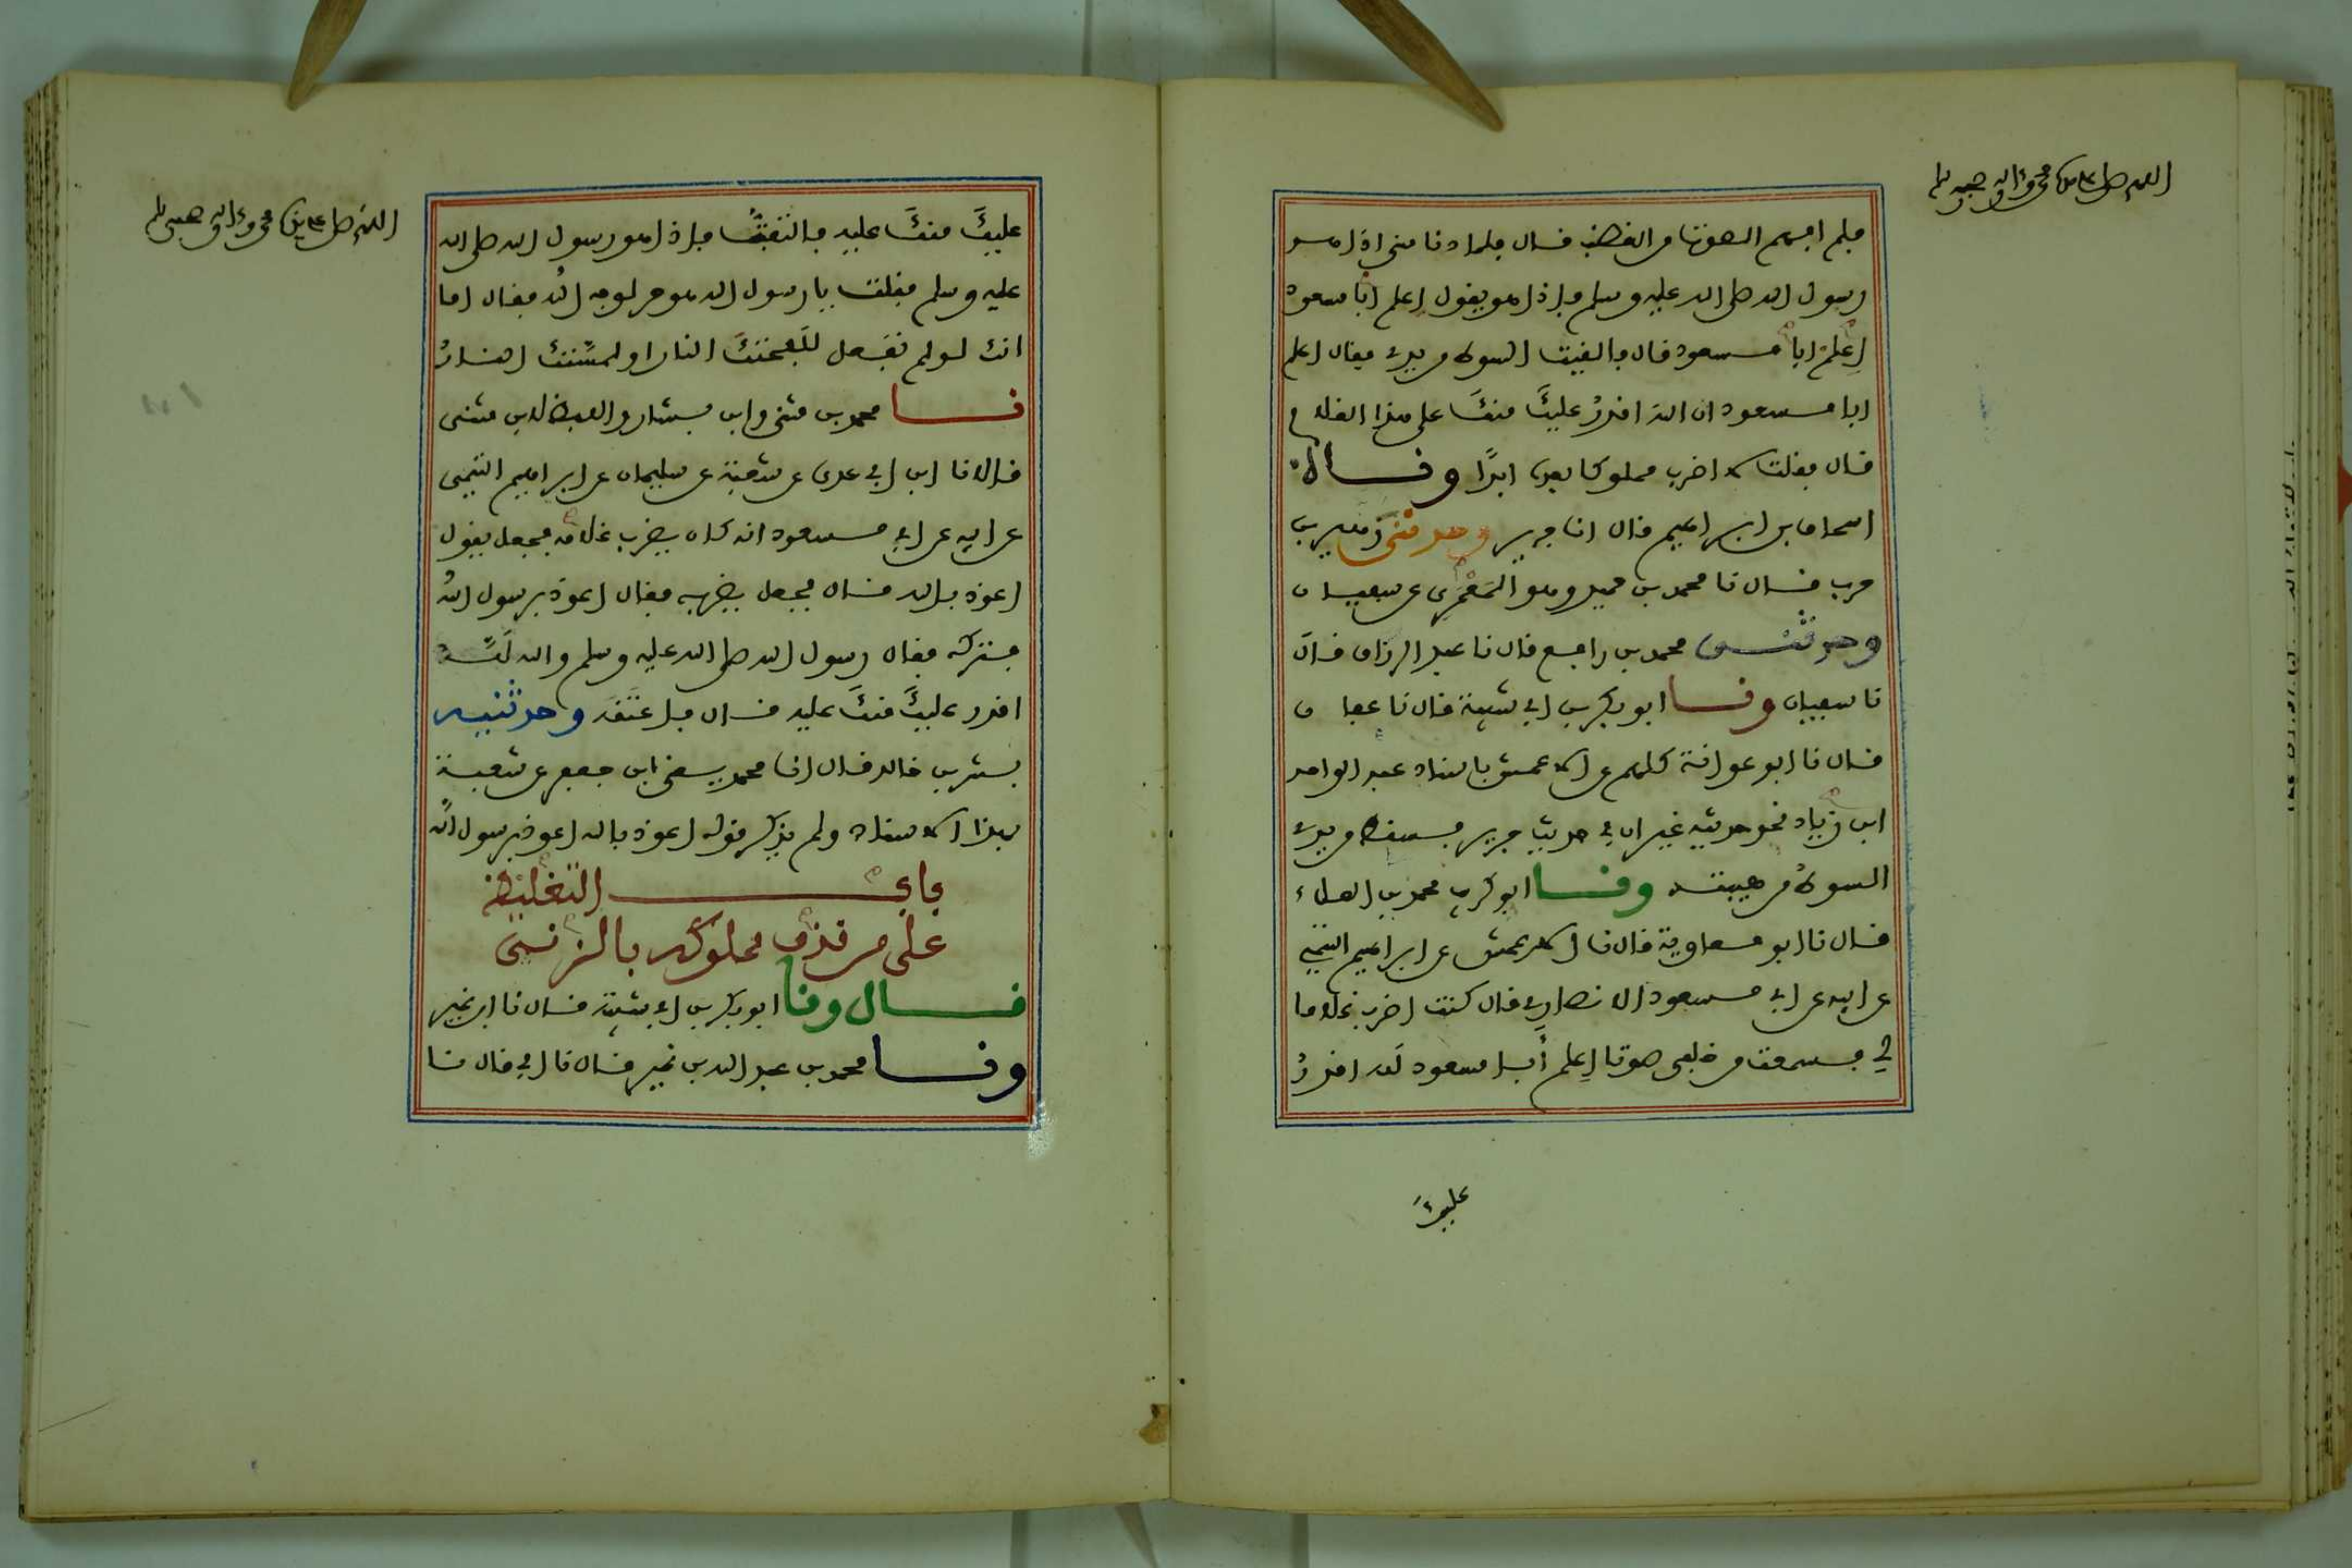 اللهم صل على سيدنا محمد وعلى اله وصحبه وسلم
فلم افهم الصوت من الغضب قال فلما دنا مني اذا هو
رسول الله صلى الله عليه وسلم فإذا هو يقول اعلم ابا مسعود
اعلم ابا مسعود قال فالقيت السوط من يدي فقال اعلم
ابا مسعود ان الله اقدر عليك منك على هذا الغلام
قال فقلت لا اضرب مملوكا بعده ابدًا وقال
اسحاق بن ابراهيم قال انا جرير وحدثني زهير بن
حرب قال نا محمد بن حميد وهو المَعْمَري عن سفيان
وحدثني محمد بن رافع قال نا عبد الرزاق قال
نا سفيان ونا ابو بكر بن ابي شيبة قال نا عفان
قال نا ابو عوانة كلهم عن الاعمش باسناد عبد الواحد
ابن زياد نحو حديثه غير ان في حديث جرير فسقط من يدي
السوط من هيبته ونا ابو كريب محمد بن العلاء
قال نا ابو معاوية قال نا الاعمش عن ابراهيم التيمي
عن ابيه عن ابي مسعود الانصاري قال كنت اضرب غلاما
لي فسمعت من خلفي صوتا اعلم أبا مسعود لَلّه اقدرُ
عليكَ
اللهم صل على سيدنا محمد وعلى اله وصحبه وسلم
عليكَ منكَ عليه فالتفتُّ فإذا هو رسول الله صلى الله
عليه وسلم فقلت يا رسول الله هو حر لوجه الله فقال اما
انك لو لم تفعل للَفحتكَ النار او لمسَّتك النارُ
نا محمد بن مثنى وابن بشار واللفظ لابن مثنى
قالا نا ابن ابي عدي عن شعبة عن سليمان عن ابراهيم التيمي
عن ابيه عن ابي مسعود انه كان يضرب غلامه فجعل يقول
اعوذ بالله قال فجعل يضربه فقال اعوذ برسول الله
فتركه فقال رسول الله صلى الله عليه وسلم والله لَلَّه
اقدر عليكَ منكَ عليه قال فاعتَقَه وحدثنيه
بشر بن خالد قال انا محمد يعني ابن جعفر عن شعبة
بهذا الاسناد ولم يذكر قوله اعوذ بالله اعوذ برسول الله
باب التغليظ
على من قذف مملوكه بالزنى
قال ونا ابو بكر بن ابي شيبة قال نا ابن نمير
ونا محمد بن عبد الله بن نمير قال نا ابي قال نا